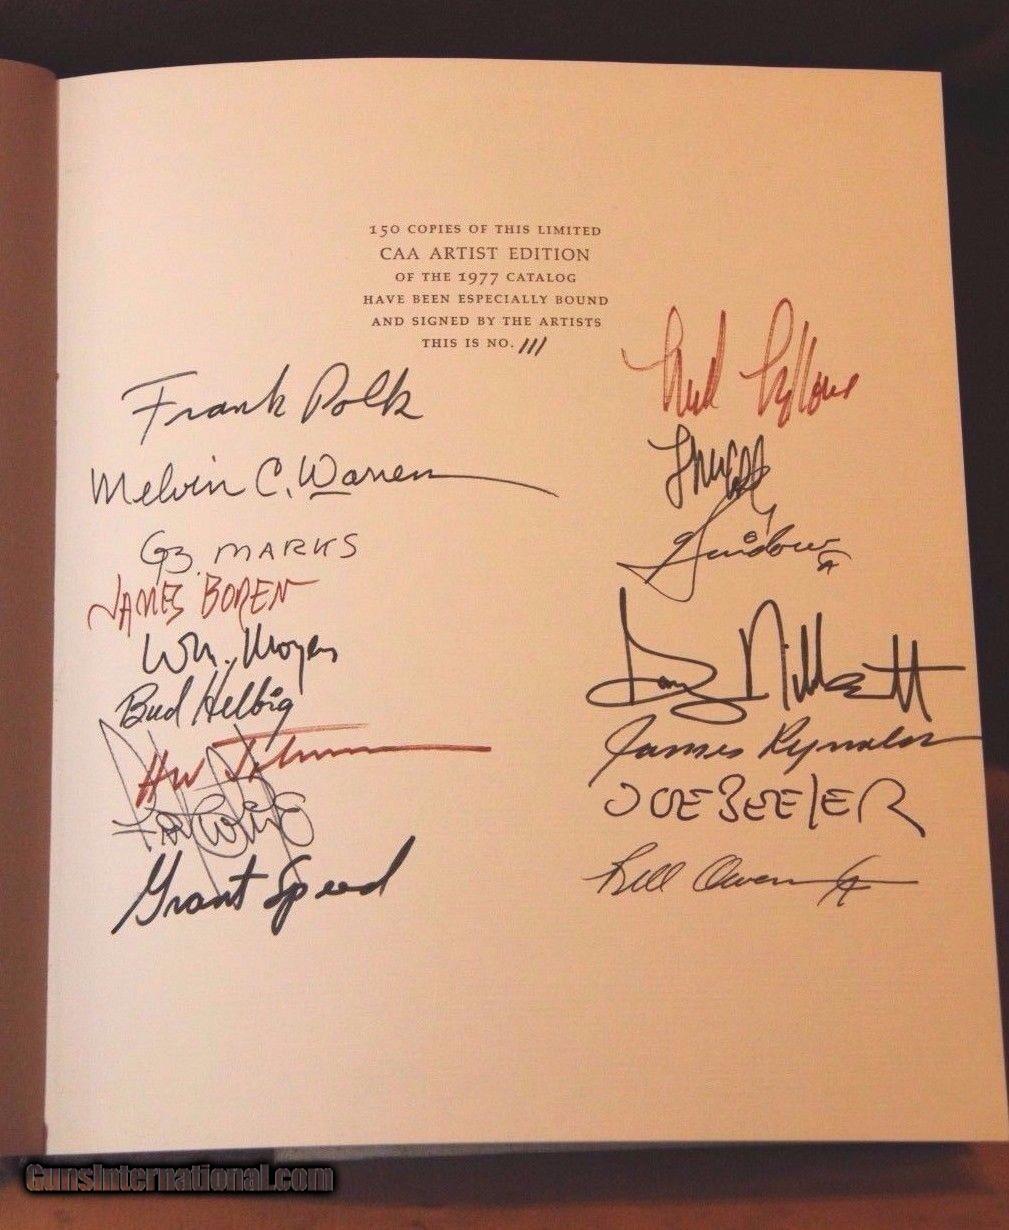 150 COPIES OF THIS LIMITED
CAA ARTIST EDITION
OF THE 1977 CATALOG
HAVE BEEN ESPECIALLY BOUND
AND SIGNED BY THE ARTISTS
THIS IS NO. 111
Frank Polk
Melvin C. Warren
GB. MARKS
JAMES BOREN
Wm. Moyers
Bud Helbig
HW
Grant Speed
Fred Fellows
James Reynolds
JOE BEELER
Bill Owen
GunsInternational.com